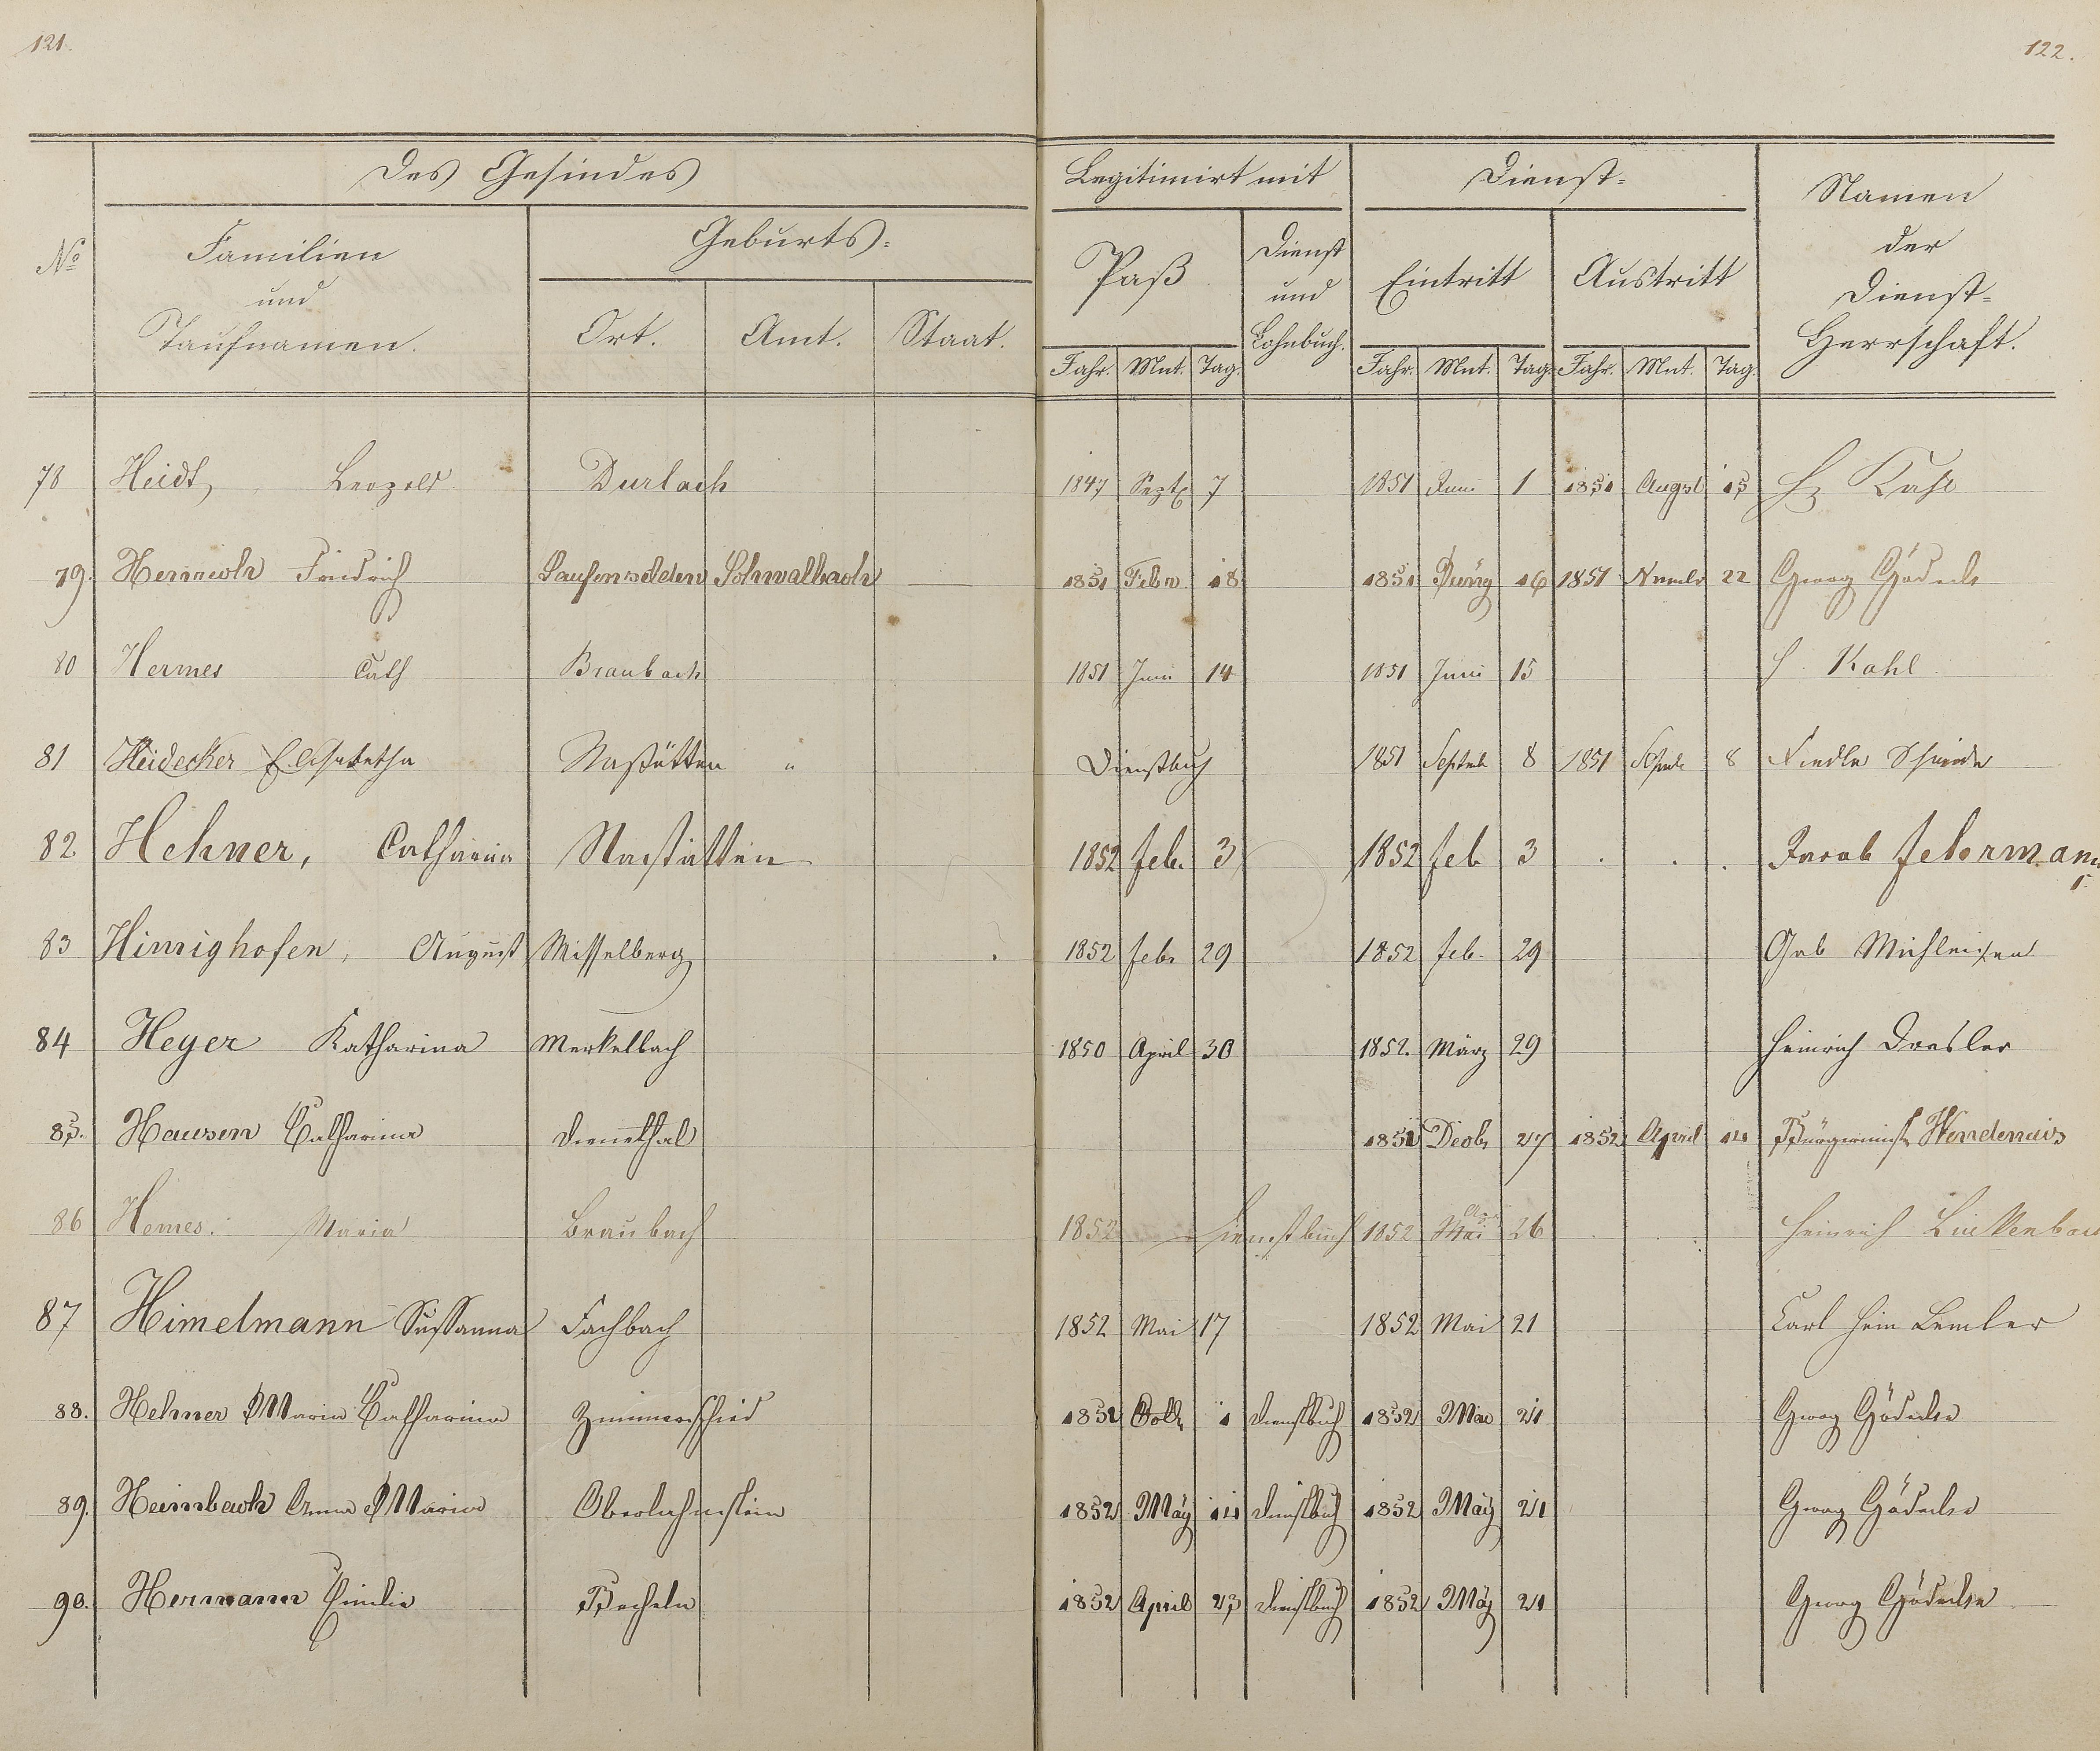 121.
122.
Des Gesindes
Legitimirt mit
Dienst-
Namen
der
Dienst-
Herrschaft.
No
Familien
und
Taufnamen.
Geburts-
Ort. Amt. Staat.
Paß
Dienst
und
Lohnbuch.
Eintritt
Austritt
Jahr. Mnt. Tag. Jahr. Mnt. Tag. Jahr. Mnt. Tag.
78 Heidt, Leopold Durlach 1847 Sept 7 1851 Juni 1 1851 Augst 15 H Kahl
79. Friedrich Laufenselden Schwalbach 1851 Febr 18 1851 16 1851 Nvmbr 22 Georg Gödecke
80 Hermes Cath Braubach 1851 Juni 14 1851 Juni 15 H. Kahl
81 Heidecker Elisabetha Nastätten " Dienstbuch 1851 Septmb 8 1851 8
82 Hehner, Catharina Nastätten 1852 feb. 3 1852 feb 3 Jacob febermann
83 Himighofen, August Misselberg 1852 febr 29 1852 feb. 29
84 Heyer Katharina Merkelbach 1850 April 30 1852. März 29 Heinrich Dresler
85. Hausen Catharina Dienethal 1851 Decbr 27 1852 April 14 Bürgermeister
86 Hemes. Maria Braubach 1852 Dienstbuch 1852 Mai 26 Heinrich Linkenbach
87 Himelmann Sussanna Fachbach 1852 Mai 17 1852 Mai 21 Carl Hein Lemler
88. Hehner Maria Catharina Zimmerschied 1851 Octbr 1 Dienstbuch 1852 Mai 21 Georg Gödecke
89. Heimbach Anna Maria Oberlahnstein 1852 May 14 Dienstbuch 1852 May 21 Georg Gödecke
90. Hermann Emilie Becheln 1852 April 23 Dienstbuch 1852 May 21 Georg Gödecke